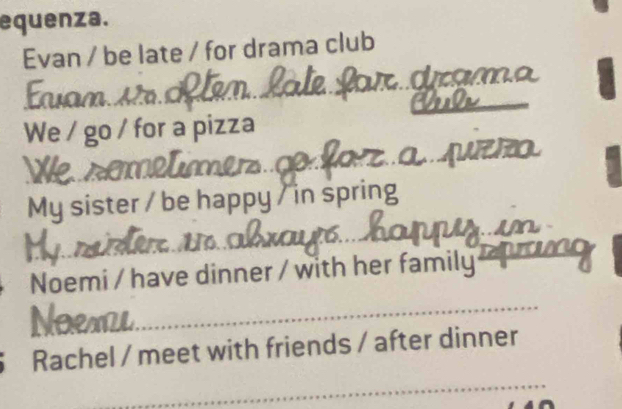 equenza.
Evan / be late / for drama club
Evan is often late for drama
club
We / go / for a pizza
We sometimes go for a pizza
My sister / be happy / in spring
My sister is always happy in
spring
Noemi / have dinner / with her family
Noemi
Rachel / meet with friends / after dinner